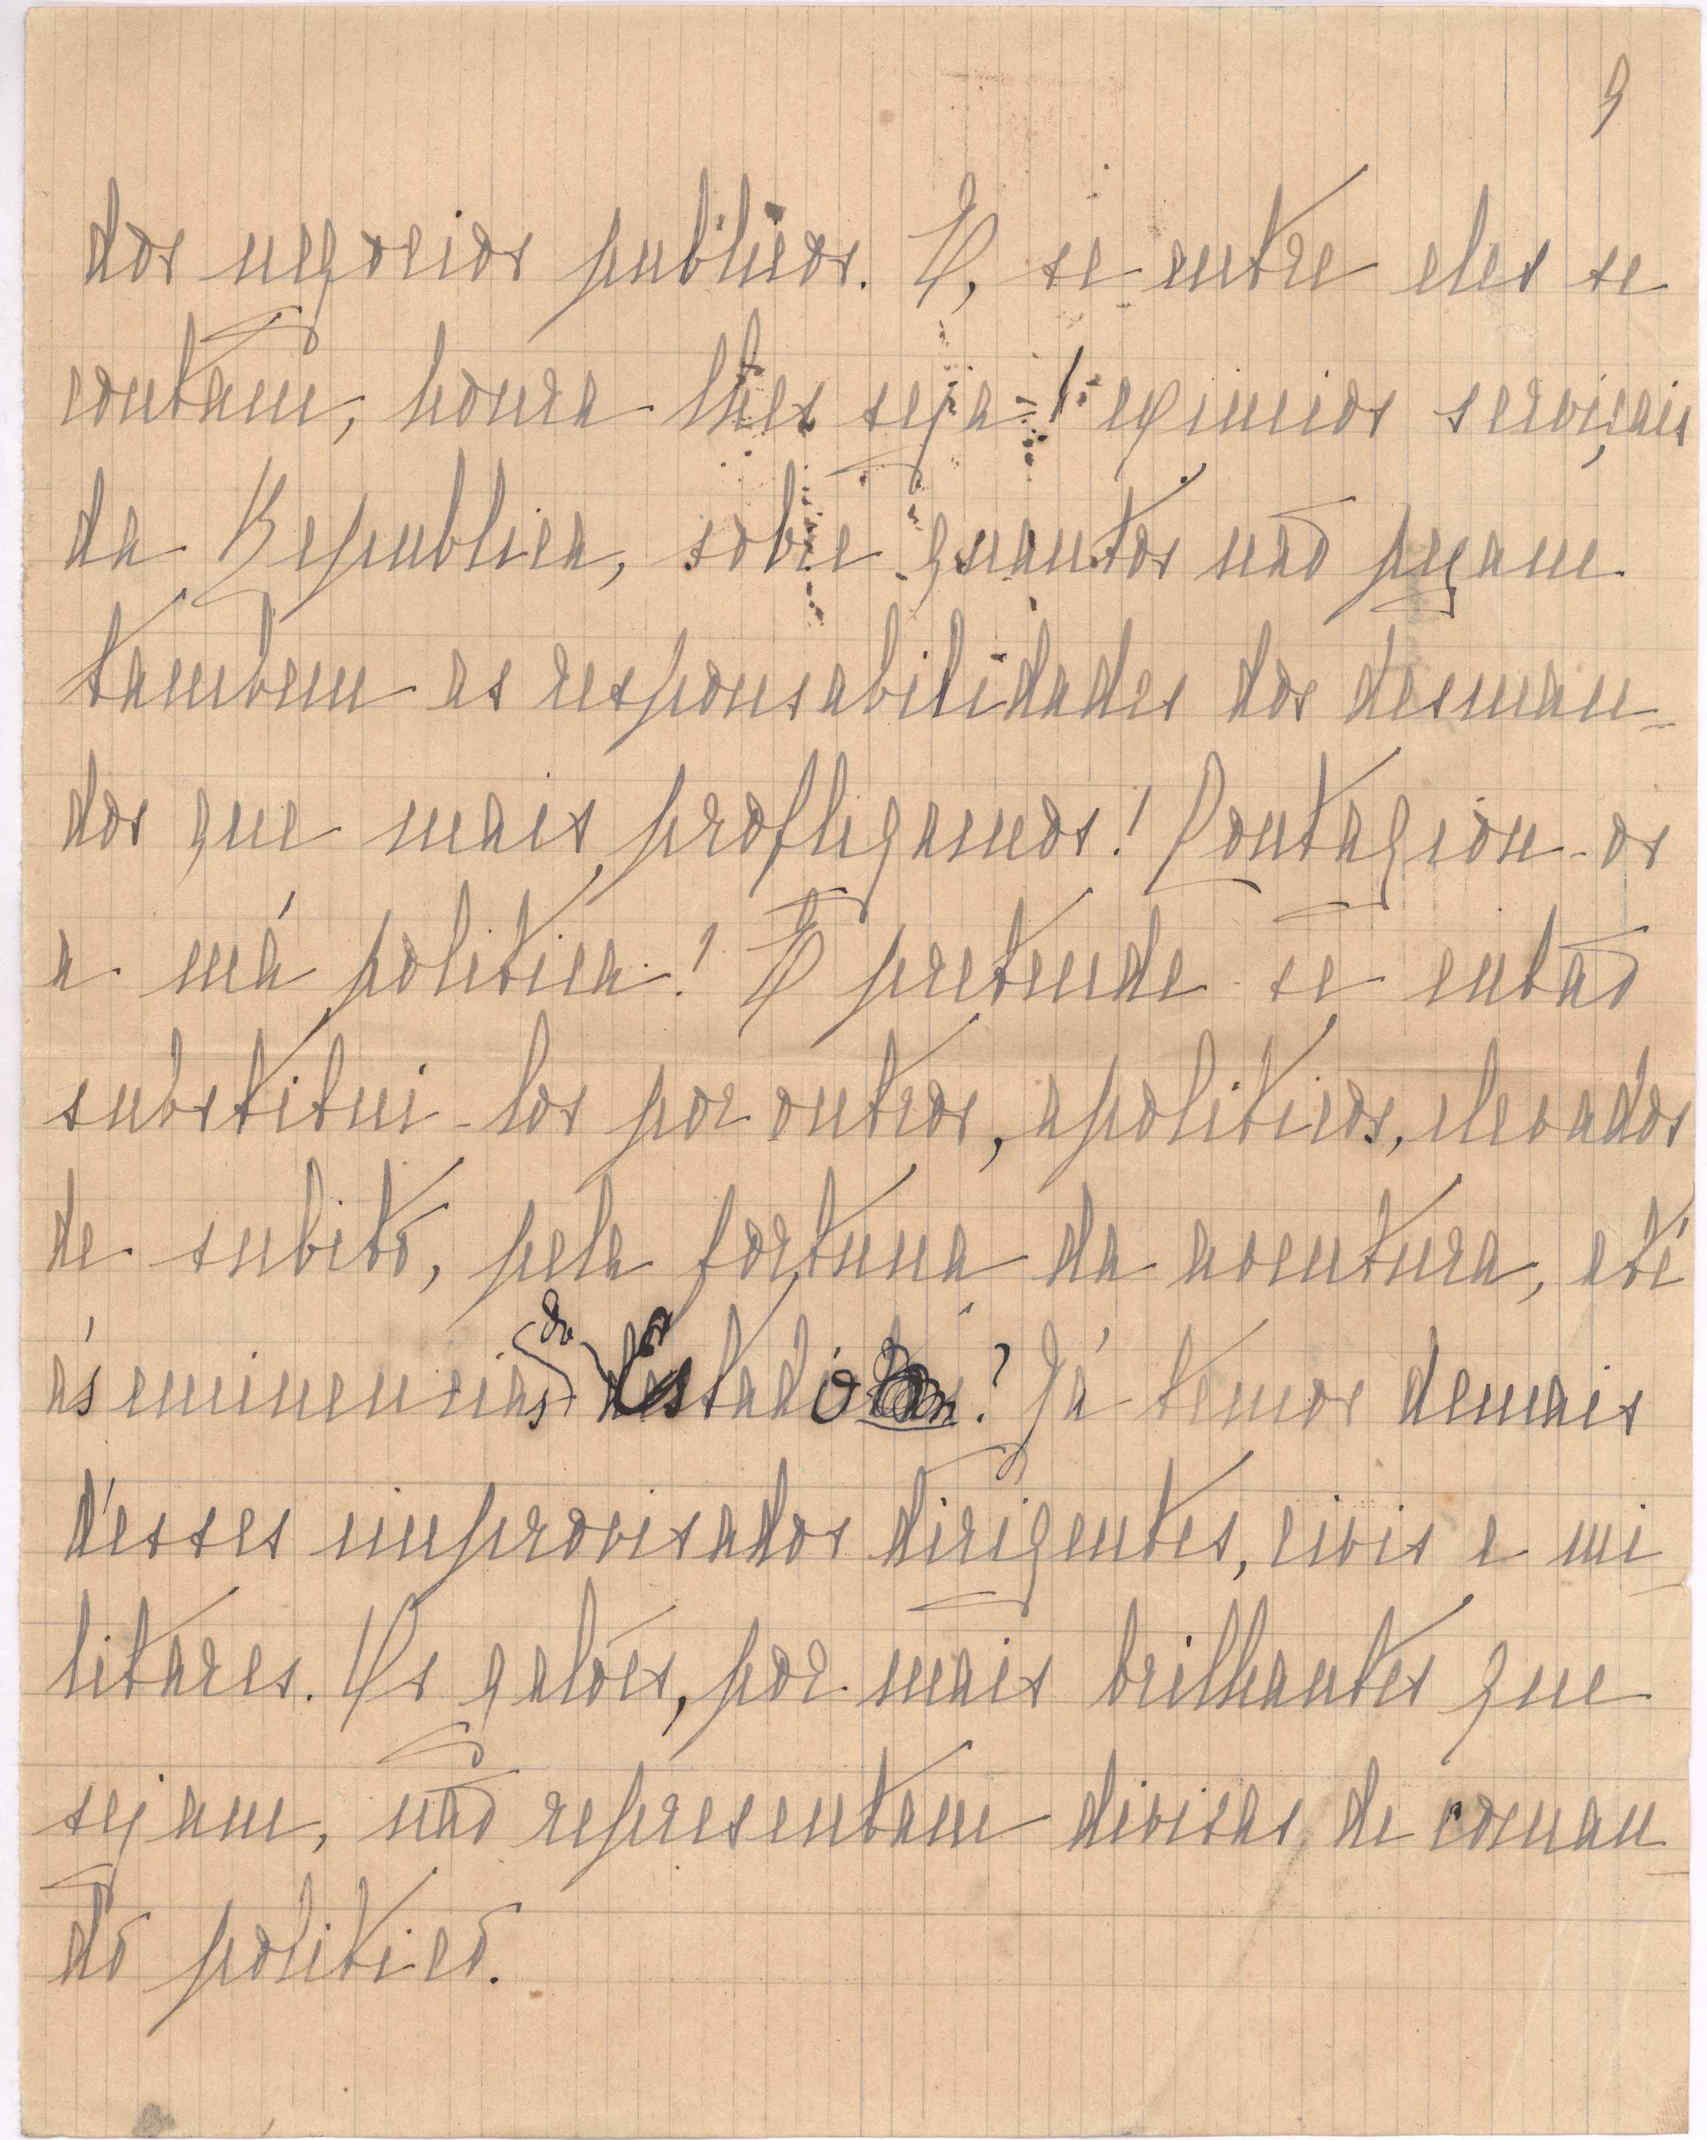 9
dos negocios publicos. E, se entre eles se
contam, honra lhes seja! eximios serviçais
da Republica, sobre quantos não pejam
tambem as responsabilidades dos desman-
dos que mais profligamos! Contagiou-os
a má politica! E pretende-se então
substitui-los por outros, apoliticos, elevados
de subito, pela fortuna da aventura, até
ás eminencias do Estado? Já temos demais
d'esses improvisados dirigentes, civis e mi
litares. Os galões, por mais brilhantes que
sejam, não representam divisas de coman
do politico.